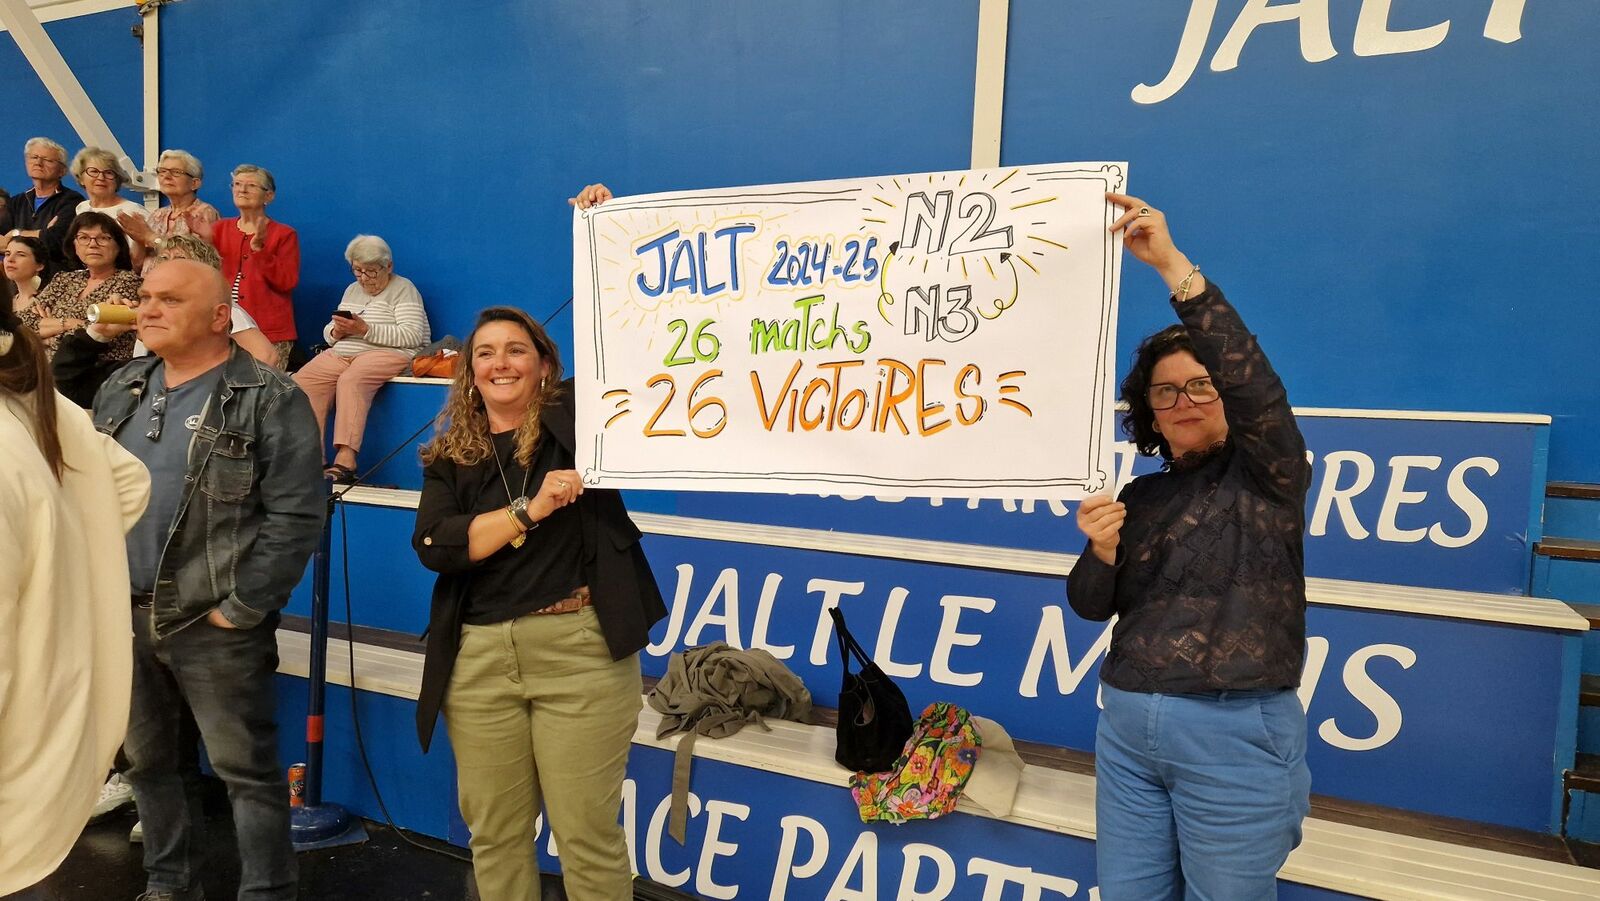 JALT
JALT 2024-25 N2
N3
26 matchs
= 26 VICTOIRES =
JALT LE M
NS
RES
PLACE PARTE